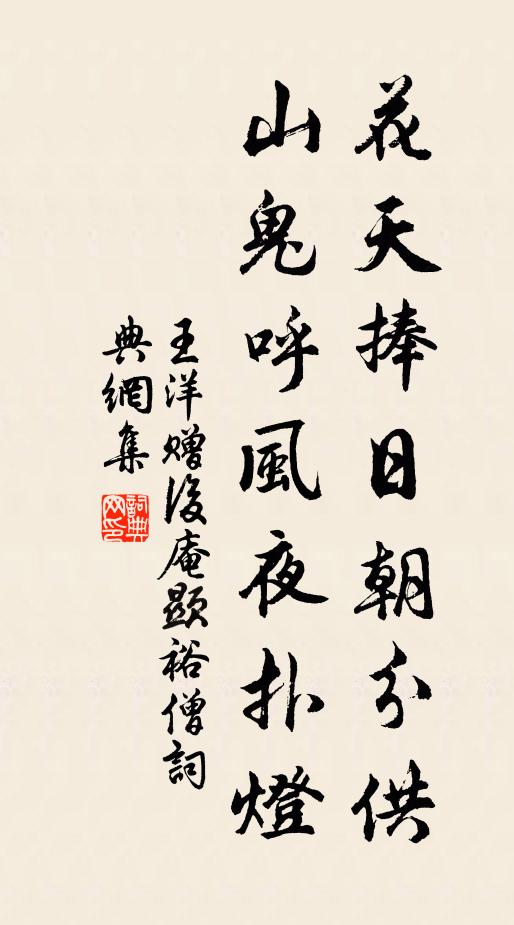 花天捧日朝分供
山鬼呼風夜扑燈
王洋赠後庵顯裕僧詞
典網集
詞典
网印